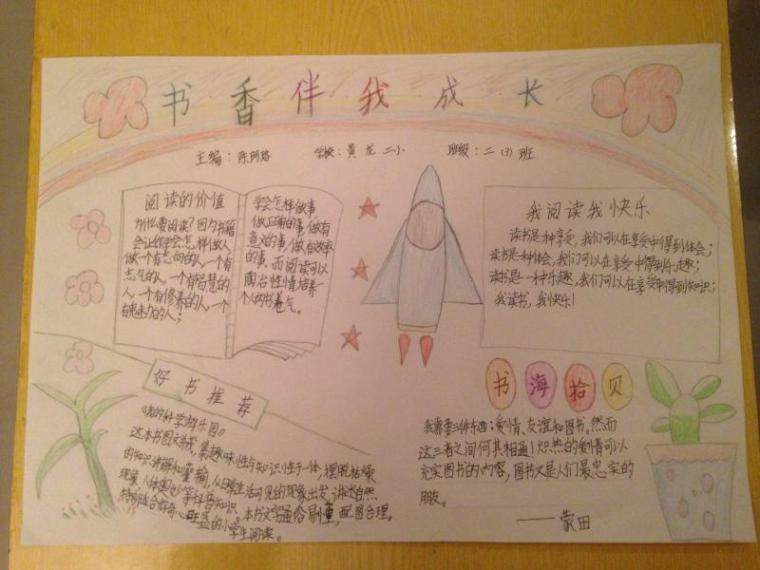 书香伴我成长
主编：陈珂熔 学校：黄龙二小 班级：二（3）班
阅读的价值
为什么要阅读？因为书籍
会让你学会怎样做人，
做一个有志向的人，一个有
志气的人，一个有智慧的
人，一个有修养的人，一个
有魅力的人；
学会怎样做事，
做正确的事，做有
意义的事，做有效率
的事。而阅读可以
陶冶性情，培养一
个人的书卷气。
我阅读我快乐
读书是一种享受，我们可以在享受中得到体会；
读书是一种体会，我们可以在享受中得到乐趣；
读书是一种乐趣，我们可以在享受中得到知识；
我读书，我快乐！
好书推荐
《我的科学游乐园》
这本书图文并茂，集趣味性与知识性于一体，摆脱枯燥
的知识讲解和灌输，从日常生活可见的现象出发，讲述自然
现象、人体奥妙等科普知识。本书文字通俗易懂，配图合理，
特别适合好奇心旺盛的小学生阅读。
书海拾贝
我需要三件东西：爱情、友谊和图书。然而
这三者之间何其相通！炽热的爱情可以
充实图书的内容，图书又是人们最忠实的
朋友。
——蒙田